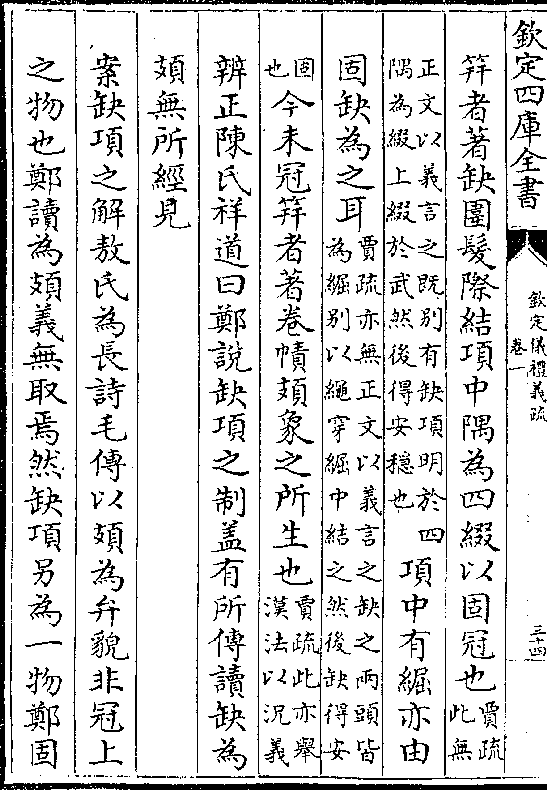 欽定四庫全書
欽定儀禮義疏
卷一
三十四
筓者著缺圍髮際結項中隅為四綴以固冠也賈疏此無
正文以義言之既別有缺項明於四
隅為綴上綴於武然後得安穩也項中有䋿亦由
固缺為之耳賈疏亦無正文以義言之缺之兩頭皆
為䋿別以繩穿䋿中結之然後缺得安
固也今未冠筓者著卷幘頍象之所生也賈疏此亦舉
漢法以況義
辨正陳氏祥道曰鄭說缺項之制盖有所傳讀缺為
頍無所經見
案缺項之解敖氏為長詩毛傳以頍為弁貌非冠上
之物也鄭讀為頍義無取焉然缺項另為一物鄭固